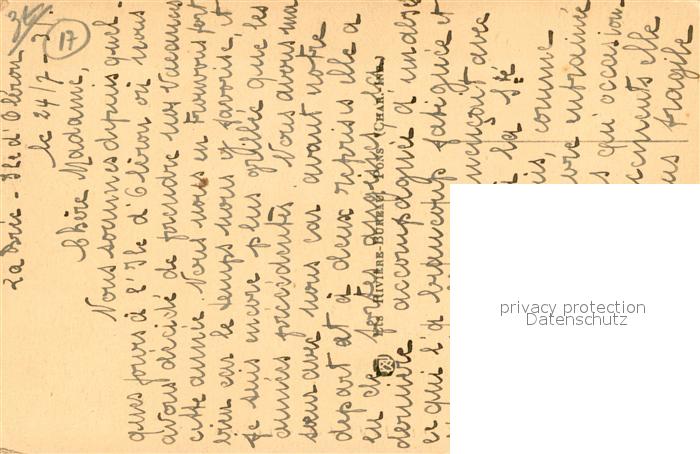 34
17
La Brée - Île d'Oléron
le 24/7 - 31
Chère Madame,
Nous sommes depuis quel-
ques jours à l'Île d'Oléron où nous
avons décidé de prendre nos vacances
cette année. Nous nous en trouvons fort
bien car le temps nous y favorise, et
je suis encore plus grillée que les
années précédentes. Nous avons ma
sœur avec nous car avant notre
départ et à deux reprises elle a
eu de fortes
dernière accompagnée d'un
ce qui l'a beaucoup fatiguée et
avec
la
comme
entrainé
qu'occasion-
elle
fragile
Éts Rivière-Bureau, Pons (Char.-Inf.)
privacy protection
Datenschutz